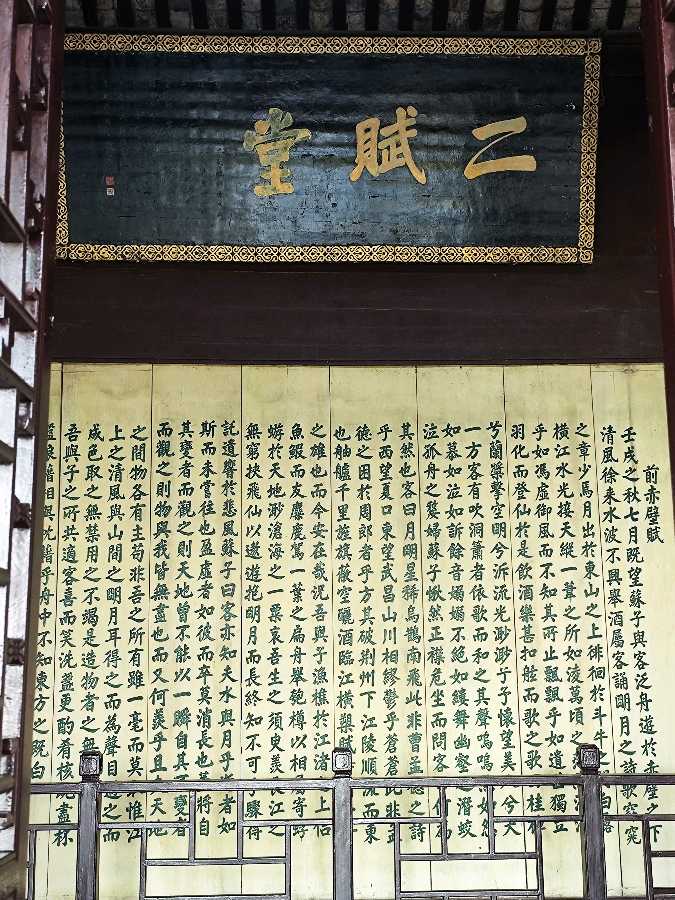 二賦堂
前赤壁賦
壬戌之秋七月既望蘇子與客泛舟遊於赤壁之下
清風徐來水波不興舉酒屬客誦明月之詩歌窈窕
之章少焉月出於東山之上徘徊於斗牛之白露
橫江水光接天縱一葦之所如淩萬頃之茫
乎如馮虛御風而不知其所止飄飄乎如遺世獨立
羽化而登仙於是飲酒樂甚扣舷而歌之歌桂棹
兮蘭槳擊空明兮泝流光渺渺兮予懷望美兮天
一方客有吹洞簫者依歌而和之其聲嗚嗚然如怨
如慕如泣如訴餘音嫋嫋不絕如縷舞幽壑之潛蛟
泣孤舟之嫠婦蘇子愀然正襟危坐而問客何為
其然也客曰月明星稀烏鵲南飛此非曹孟德之詩
乎西望夏口東望武昌山川相繆鬱乎蒼蒼此非孟
德之困於周郎者乎方其破荊州下江陵順流而東
也舳艫千里旌旗蔽空釃酒臨江橫槊賦
之雄也而今安在哉況吾與子漁樵於江渚上侶
魚鰕而友麋鹿駕一葉之扁舟舉匏樽以相屬寄蜉
蝣於天地渺滄海之一粟哀吾生之須臾羨長江之
無窮挾飛仙以遨遊抱明月而長終知不可乎驟得
託遺響於悲風蘇子曰客亦知夫水與月乎逝者如
斯而未嘗往也盈虛者如彼而卒莫消長也蓋將自
其變者而觀之則天地曾不能以一瞬自其不變者
而觀之則物與我皆無盡也而又何羨乎且夫天地
之間物各有主苟非吾之所有雖一毫而莫取惟江
上之清風與山間之明月耳得之而為聲目遇之而
成色取之無禁用之不竭是造物者之無
吾與子之所共適客喜而笑洗盞更酌肴核既盡杯
盤狼藉相與枕藉乎舟中不知東方之既白